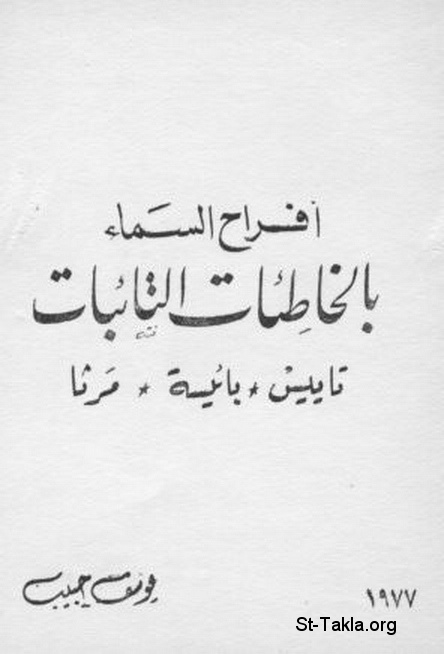 أفراح السَماء
بالخاطِئات التائبات
تاييسْ * بائيسة * مَرثا
يوسف حبيب
١٩٧٧
St-Takla.org